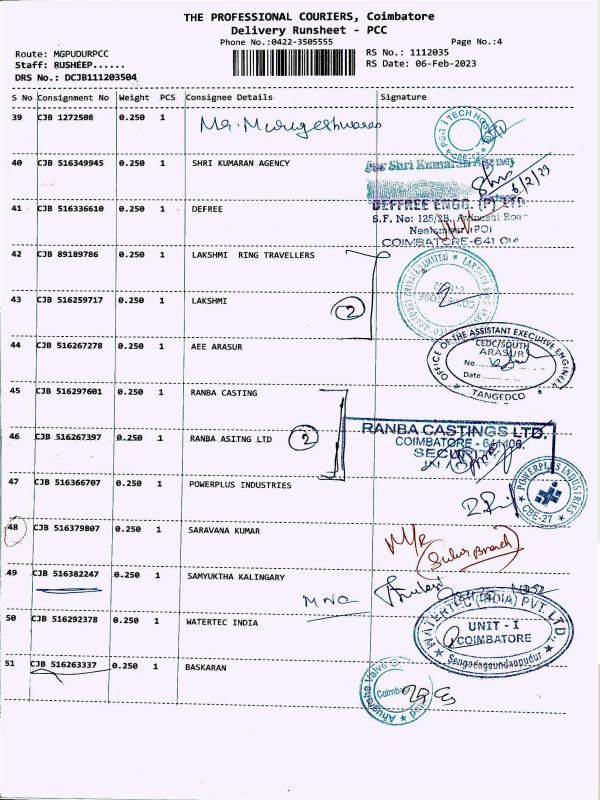 THE PROFESSIONAL COURIERS, Coimbatore
Delivery Runsheet - PCC
Phone No.:0422-3505555 Page No.:4
Route: MGPUDURPCC RS No.: 1112035
Staff: RUSHEEP...... RS Date: 06-Feb-2023
DRS No.: DCJB111203504
S No Consignment No Weight PCS Consignee Details Signature
39 CJB 1272508 0.250 1 Mr. Murugeshwaran
PSG iTECH
CBE
40 CJB 516349945 0.250 1 SHRI KUMARAN AGENCY
For Shri Kumaran Agency
6/2/23
41 CJB 516336610 0.250 1 DEFREE
DEFFREE ENGG. (P) LTD
S.F. No: 125/2B, Avinashi Road
Neelambur (PO)
COIMBATORE-641 014
42 CJB 89189786 0.250 1 LAKSHMI RING TRAVELLERS
43 CJB 516259717 0.250 1 LAKSHMI
2
44 CJB 516267278 0.250 1 AEE ARASUR
OFFICE OF THE ASSISTANT EXECUTIVE ENGINEER
CEDC/SOUTH
ARASUR
No.
Date
TANGEDCO
45 CJB 516297601 0.250 1 RANBA CASTING
46 CJB 516267397 0.250 1 RANBA ASITNG LTD 2
RANBA CASTINGS LTD.
COIMBATORE - 641406.
SECURITY
47 CJB 516366707 0.250 1 POWERPLUS INDUSTRIES
POWERPLUS INDUSTRIES
CBE-27
48 CJB 516379807 0.250 1 SARAVANA KUMAR
(Sulur Branch)
49 CJB 516382247 0.250 1 SAMYUKTHA KALINGARY
50 CJB 516292378 0.250 1 WATERTEC INDIA
WATERTEC (INDIA) PVT. LTD.,
UNIT - I
COIMBATORE
51 CJB 516263337 0.250 1 BASKARAN
Coimbatore